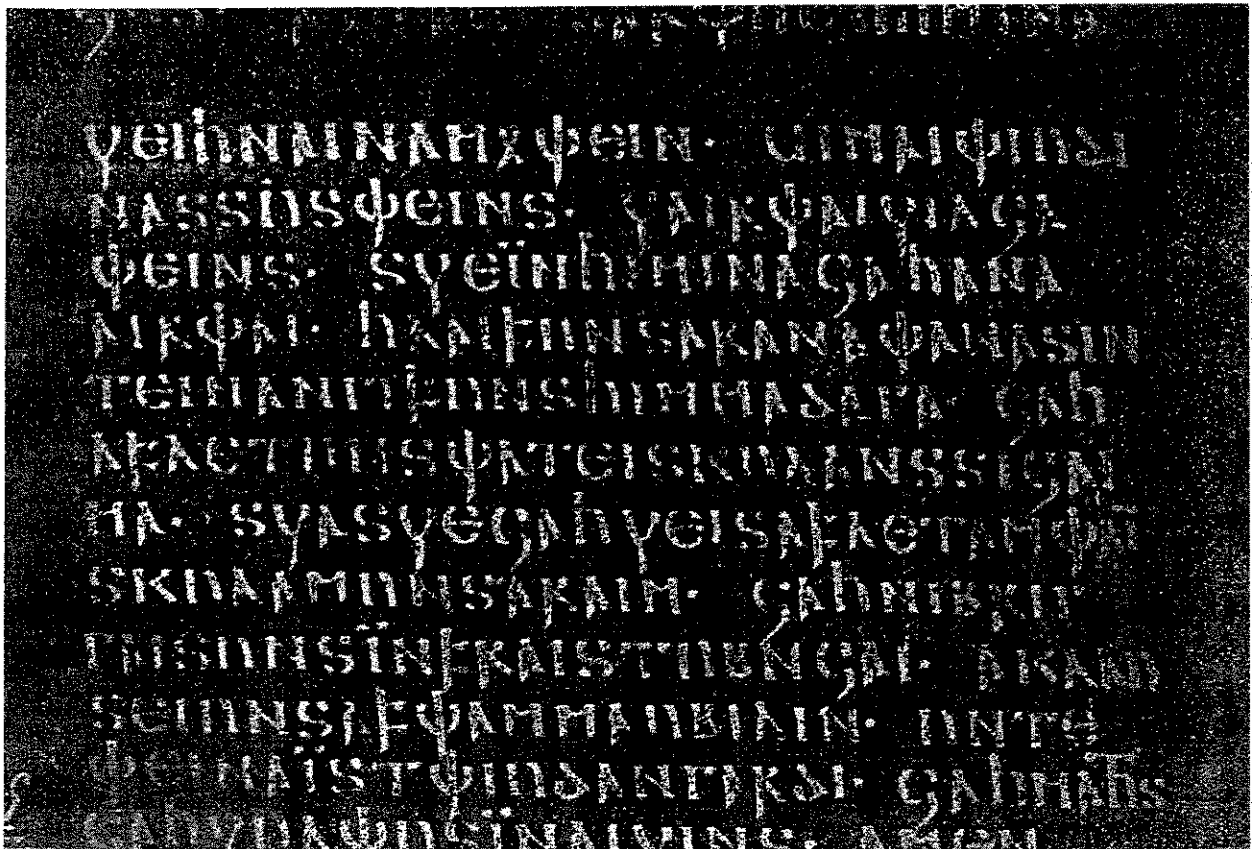 𐍅𐌴𐌹𐌷𐌽𐌰𐌹𐌽𐌰𐌼𐍉𐌸𐌴𐌹𐌽· 𐌵𐌹𐌼𐌰𐌹𐌸𐌹𐌿𐌳𐌹
𐌽𐌰𐍃𐍃𐌿𐍃𐌸𐌴𐌹𐌽𐍃· 𐍅𐌰𐌹𐍂𐌸𐌰𐌹𐍅𐌹𐌻𐌾𐌰
𐌸𐌴𐌹𐌽𐍃· 𐍃𐍅𐌴𐌹̈𐌽𐌷𐌹𐌼𐌹𐌽𐌰𐌾𐌰𐌷𐌰𐌽𐌰
𐌰𐌹𐍂𐌸𐌰𐌹· 𐌷𐌻𐌰𐌹𐍆𐌿𐌽𐍃𐌰𐍂𐌰𐌽𐌰𐌸𐌰𐌽𐌰𐍃𐌹𐌽
𐍄𐌴𐌹𐌽𐌰𐌽𐌲𐌹𐍆𐌿𐌽𐍃𐌷𐌹𐌼𐌼𐌰𐌳𐌰𐌲𐌰· 𐌾𐌰𐌷
𐌰𐍆𐌻𐌴𐍄𐌿𐌽𐍃𐌸𐌰𐍄𐌴𐌹𐍃𐌺𐌿𐌻𐌰𐌽𐍃𐍃𐌹𐌾𐌰𐌹
𐌼𐌰· 𐍃𐍅𐌰𐍃𐍅𐌴𐌾𐌰𐌷𐍅𐌴𐌹𐍃𐌰𐍆𐌻𐌴𐍄𐌰𐌼𐌸𐌰𐌹
𐍃𐌺𐌿𐌻𐌰𐌼𐌿𐌽𐍃𐌰𐍂𐌰𐌹𐌼· 𐌾𐌰𐌷𐌽𐌹𐌱𐍂𐌹𐌲
𐌲𐌰𐌹𐍃𐌿𐌽𐍃𐌹̈𐌽𐍆𐍂𐌰𐌹𐍃𐍄𐌿𐌱𐌽𐌾𐌰𐌹· 𐌰𐌺𐌻𐌰𐌿
𐍃𐌴𐌹𐌿𐌽𐍃𐌰𐍆𐌸𐌰𐌼𐌼𐌰𐌿𐌱𐌹𐌻𐌹𐌽· 𐌿𐌽𐍄𐌴
𐌸𐌴𐌹𐌽𐌰𐌹̈𐍃𐍄𐌸𐌹𐌿𐌳𐌰𐌽𐌲𐌰𐍂𐌳𐌹· 𐌾𐌰𐌷𐌼𐌰𐌷𐍄𐍃
𐌾𐌰𐌷𐍅𐌿𐌻𐌸𐌿𐍃𐌹̈𐌽𐌰𐌹𐍅𐌹𐌽𐍃· 𐌰𐌼𐌴𐌽